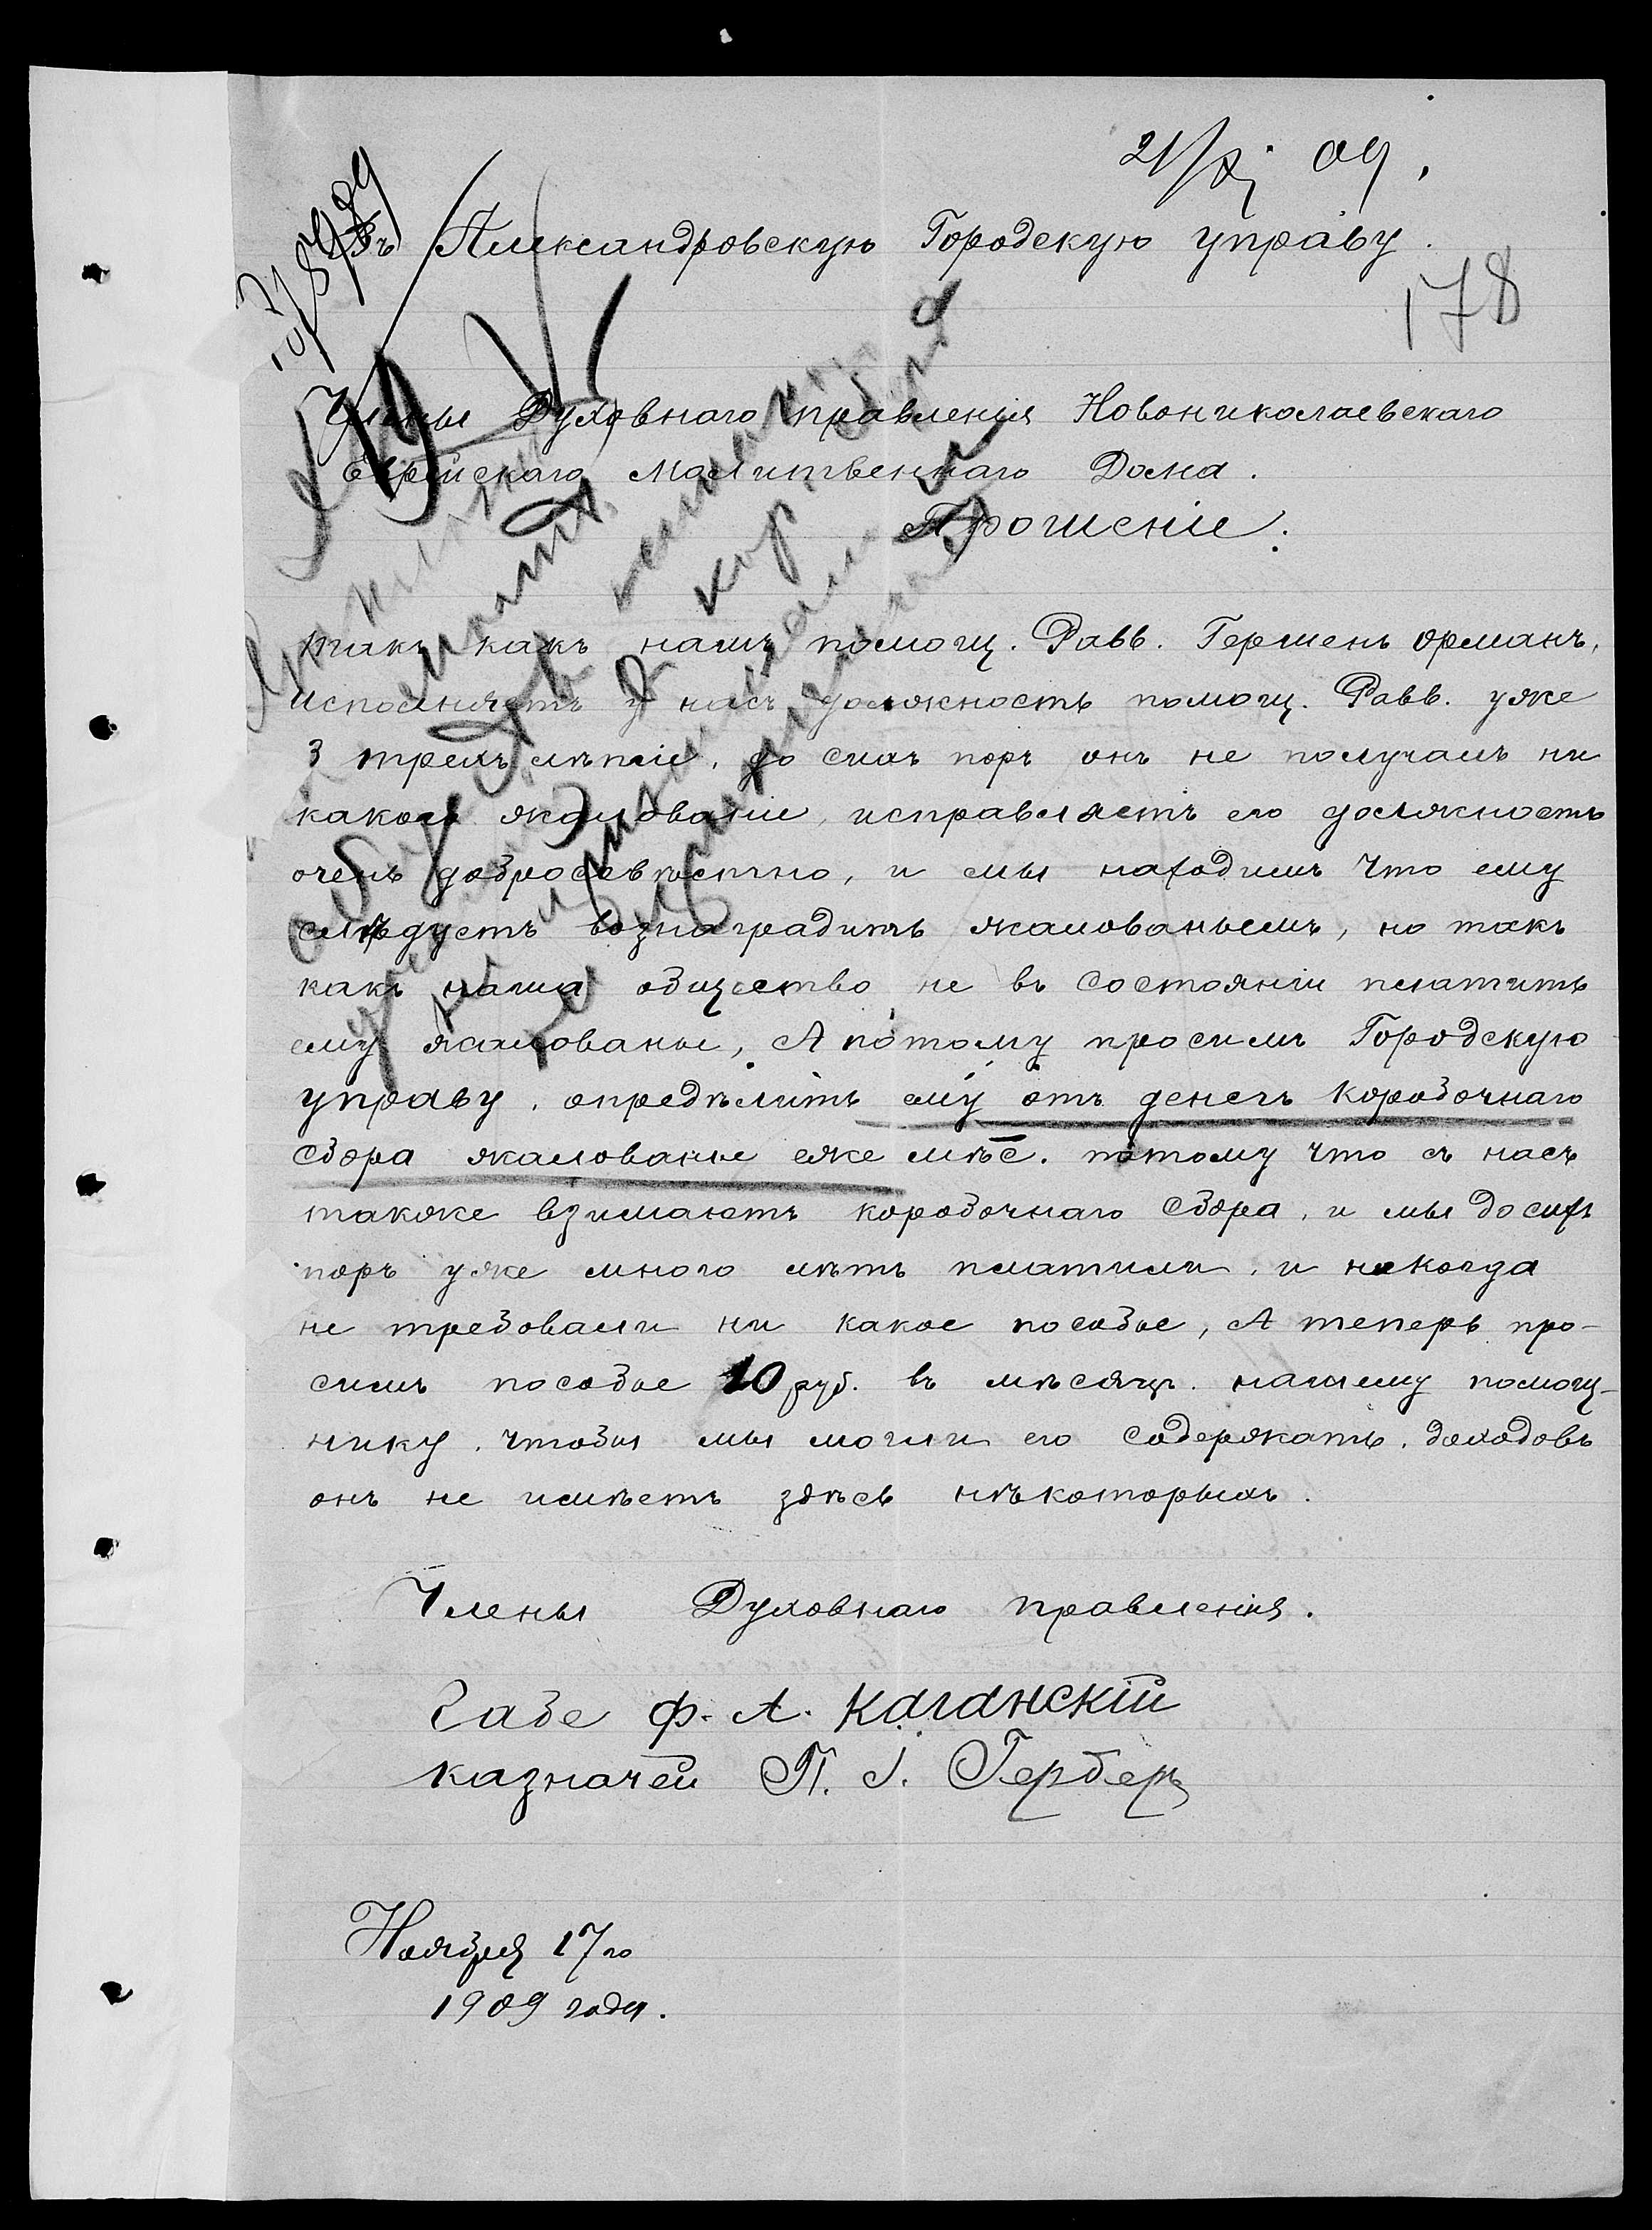 21/XI 09.
Въ Александровскую Городскую управу.
178
Члены Духовнаго правленія Новониколаевскаго
Еврейскаго Молитвеннаго Дома.
Прошеніе.
такъ какъ нашъ помощ. Равв. Гершенъ Орманъ,
исполняетъ у насъ должность помощ. Равв. уже
3 трехъ лѣтіе, до сихъ поръ онъ не получалъ ни
какого жалованіе, исправляетъ его должность
очень добросовѣстно, и мы находимъ что ему
слѣдуетъ вознаградить жалованьемъ, но такъ
какъ наша общество не въ состояніи платить
ему жалованье, А потому просимъ Городскую
управу, опредѣлить ему отъ денегъ коробочнаго
сбора жалованье еже мѣс. потому что съ насъ
также взимаютъ коробочнаго сбора, и мы до сихъ
поръ уже много лѣтъ платили, и некогда
не требовали ни какое пособіе, А теперь про-
симъ пособіе 10 руб. въ мѣсяцъ. нашему помощ-
нику, чтобы мы могли его содержать. доходовъ
онъ не имѣетъ здѣсь нѣкоторыхъ.
Члены Духовнаго правленія.
Габе Ф. А. Каганскій
казначей П. І. Герберъ
Ноября 17го
1909 года.